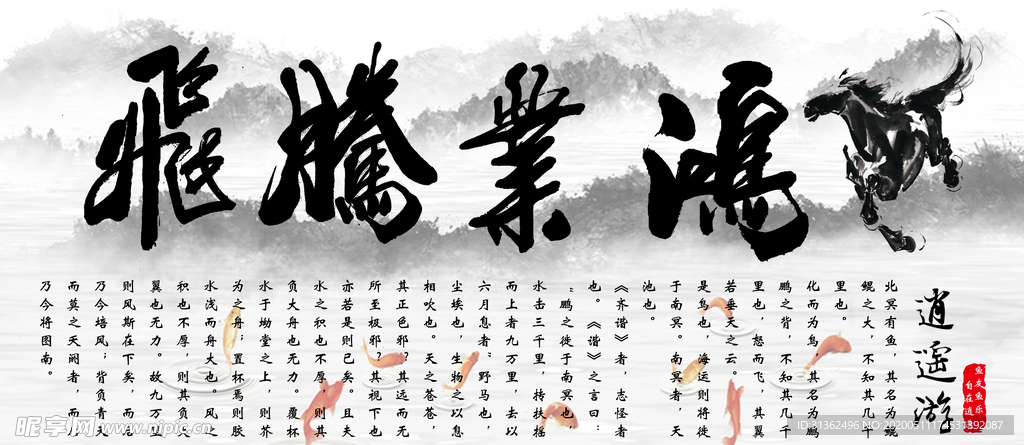 鴻業騰飛
逍遥游
鱼友鱼乐
北冥有鱼，其名为鲲
鲲之大，不知其几千
里也。
化而为鸟，其名为鹏
鹏之背，不知其几千
里也，怒而飞，其翼
若垂天之云。
是鸟也，海运则将徙
于南冥。南冥者，天
池也。
《齐谐》者，志怪者
也。《谐》之言曰：
“鹏之徙于南冥也，
水击三千里，抟扶摇
而上者九万里，去以
六月息者”野马也，
尘埃也，生物之以息
相吹也。天之苍苍，
其正色邪？其远而无
所至极邪？其视下也
亦若是则已矣。且夫
水之积也不厚，则其
负大舟也无力。覆杯
水于坳堂之上，则芥
为之舟；置杯焉则胶
水浅而舟大也。风之
积也不厚，则其负大
翼也无力。故九万里
则风斯在下矣，而后
乃今培风；背负青天
而莫之夭阏者，而后
乃今将图南。
昵享网 www.nipic.cn
ID:31362496 NO:20200511174531392087